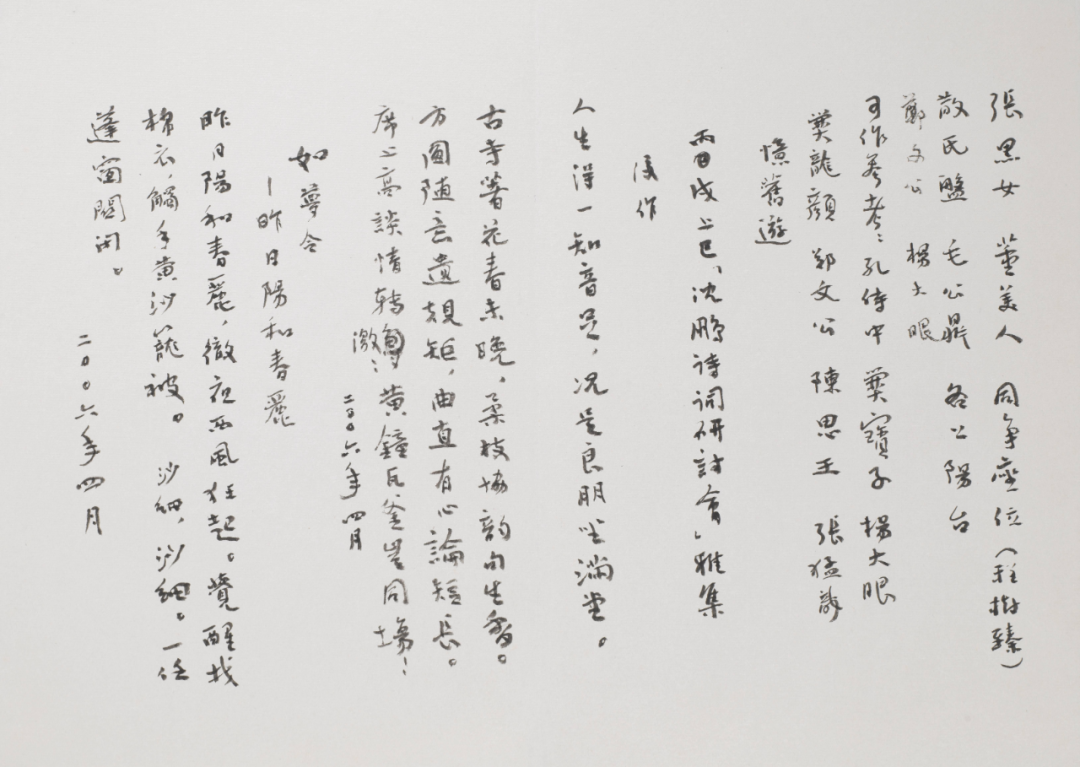 張黑女 董美人 同争座位（程樹臻）
散氏盤 毛公鼎 各公陽台
鄭文公 楊大眼
可作参考：孔侍中 爨寶子 楊大眼
爨龍顏 鄭文公 陳思王 張猛龍
憶舊遊
丙戌上巳，沈鵬诗词研討會，雅集
後作
人生得一知音足，况是良朋坐滿堂。
古寺著花春未晚，柔枝協韵句生香。
方圓随意遺規矩，曲直有心論短長。
席上高談情轉激：黄鐘瓦釜豈同場！
二〇〇六年四月
如夢令
－昨日陽和春麗
昨日陽和春麗，徹夜西風狂起。覺醒找
棉衣，觸手黄沙籠被。沙細，沙細。一任
蓬窗關闭。
二〇〇六年四月